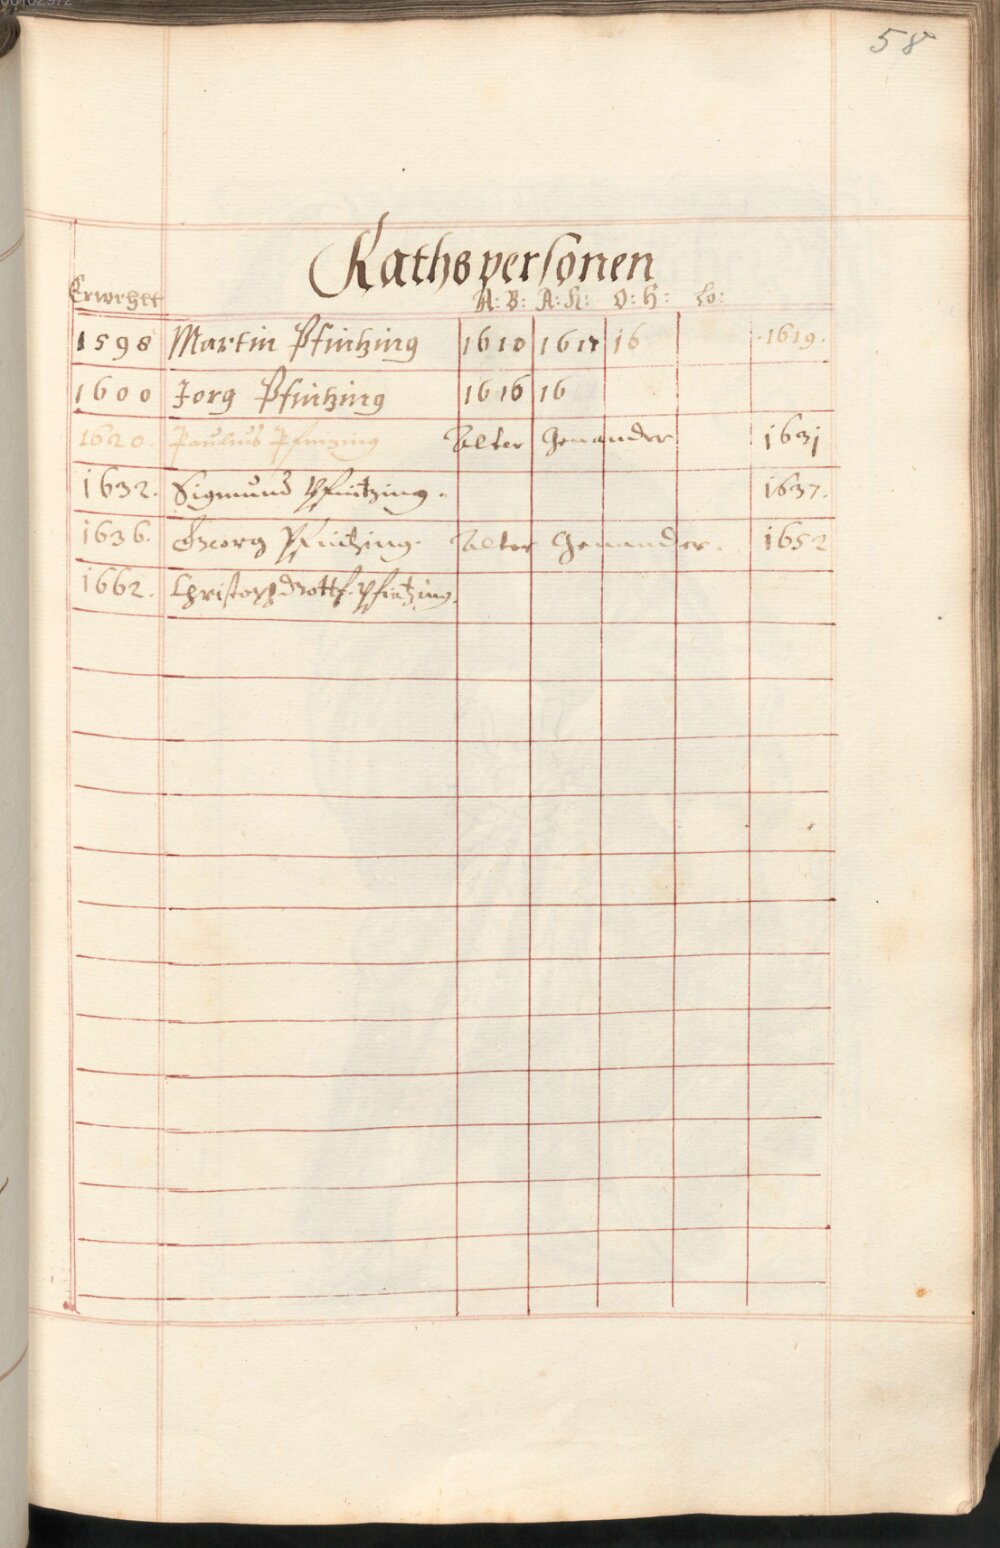 58
Rathspersonen
Erwehlt A: B: A: H: O: H: Lo:
1598 Martin Pfintzing 1610 1617 16 1619.
1600 Jorg Pfintzing 1616 16
1620. Paulus Pfintzing Alter Genander 1631
1632. Sigmund Pfintzing. 1637.
1636. Georg Pfintzing. Alter Genander. 1652
1662. Christoph Gottf. Pfintzing.